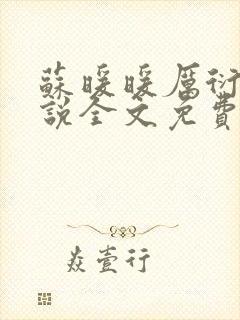 蘇暖暖厲衍
說全文免費
焱壹行